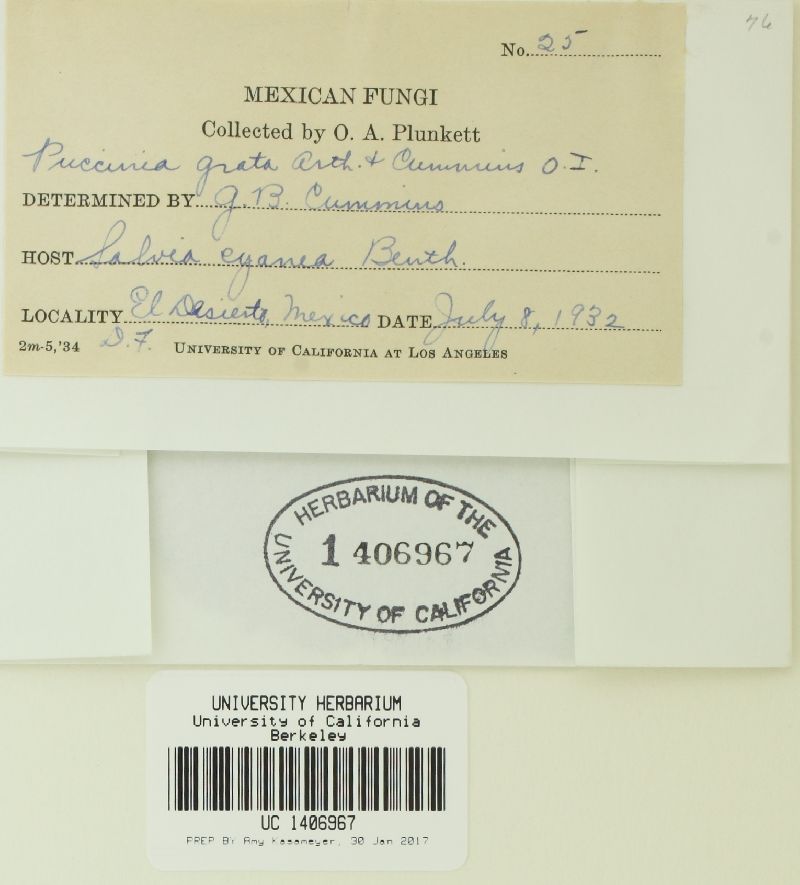 76
No. 25
MEXICAN FUNGI
Collected by O. A. Plunkett
Puccinia grata Arth. & Cummins O. I.
DETERMINED BY G. B. Cummins
HOST Salvia cyanea Benth.
LOCALITY El Desierto, Mexico DATE July 8, 1932
D. F.
2m-5,'34 UNIVERSITY OF CALIFORNIA AT LOS ANGELES
HERBARIUM OF THE
1 406967
UNIVERSITY OF CALIFORNIA
UNIVERSITY HERBARIUM
University of California
Berkeley
UC 1406967
PREP BY Amy Kasameyer, 30 Jan 2017